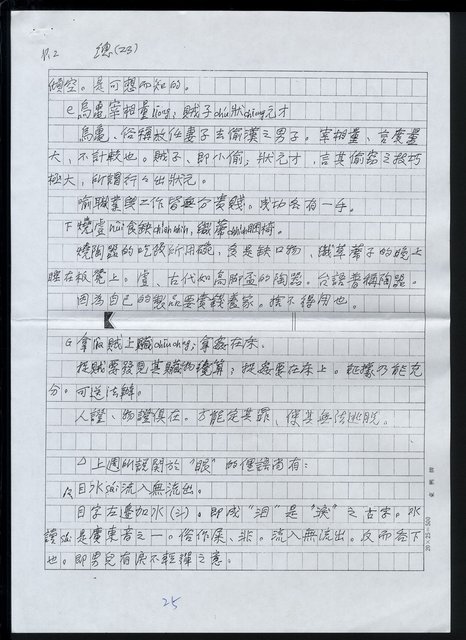 P.2 總(23)
傾空。是可想而知的。
e 烏龜宰相量liōng；賊子chú狀chiōng元才
烏龜、俗稱放任妻子去偷漢之男子。宰相量、言度量
大、不計較也。賊子、即小偷；狀元才，言其偷竊之技巧
極大，所謂行行出狀元。
喻職業與工作皆無分貴賤。成功各有一手。
F 燒虛食缺，織草睏椅。
燒陶器的吃飯所用碗，多是缺口物、織草蓆子的晚上
睡在板凳上。虛、古代如高腳盃的陶器。台語音稱陶器。
因為自己的製品要賣錢養家。捨不得用也。
G 拿做賊上贓；拿姦在床、
捉賊要發見其贓物纔算；捉姦要在床上。証據乃能充
分。可送法辦。
人證、物證俱在。才能定其罪、使其無法逃脫。
△上週所說關於"眼"的俚諺尚有：
目水sái流入無流出。
目字左邊加水(氵)。即成"泪"是"淚"之古字。水
讀sái是廣東音之一。俗作屎、非。流入無流出。反而吞下
也。即男兒有淚不輕彈之意。
20×25=500
25